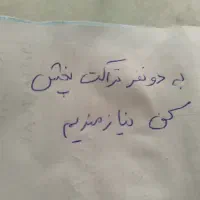 به دو نفر تراکت پخش
کن نیازمندیم